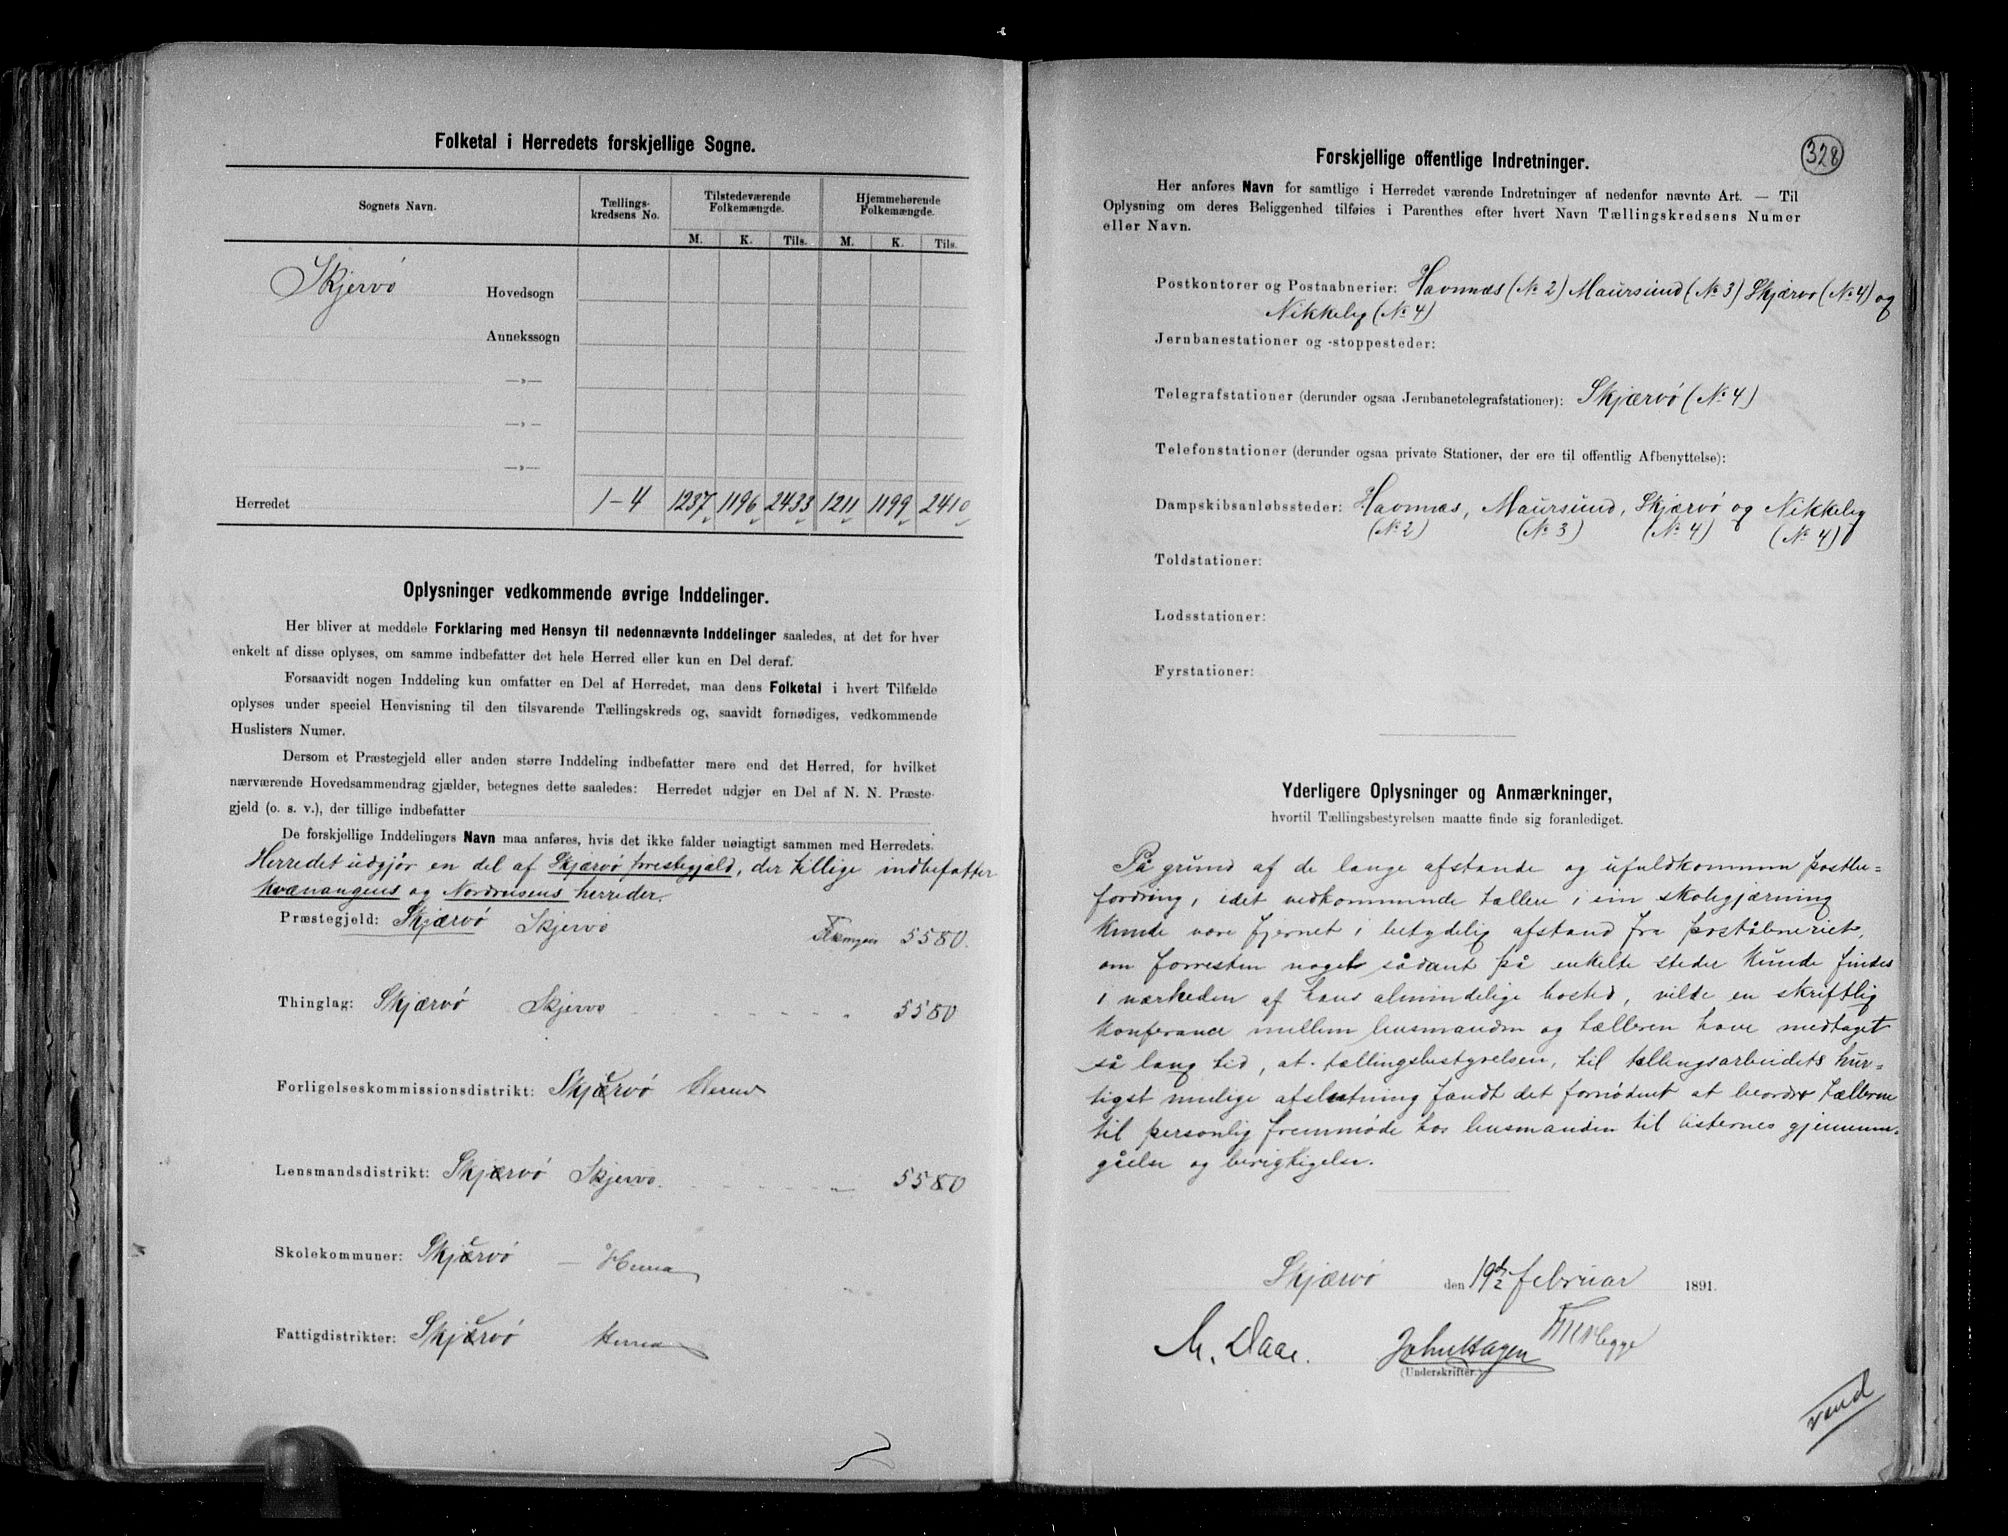 Folketal i Herredets forskjellige Sogne.
Sognets Navn.
Tællings-
kredsens No.
Tilstedeværende
Folkemængde.
Hjemmehørende
Folkemængde.
M. K. Tils. M. K. Tils.
Skjervö Hovedsogn
Annekssogn
—»—
—»—
—»—
Herredet 1-4 1237 1196 2433 1211 1199 2410
Oplysninger vedkommende øvrige Inddelinger.
Her bliver at meddele Forklaring med Hensyn til nedennævnte Inddelinger saaledes, at det for hver
enkelt af disse oplyses, om samme indbefatter det hele Herred eller kun en Del deraf.
Forsaavidt nogen Inddeling kun omfatter en Del af Herredet, maa dens Folketal i hvert Tilfælde
oplyses under speciel Henvisning til den tilsvarende Tællingskreds og, saavidt fornødiges, vedkommende
Huslisters Numer.
Dersom et Præstegjeld eller anden større Inddeling indbefatter mere end det Herred, for hvilket
nærværende Hovedsammendrag gjælder, betegnes dette saaledes: Herredet udgjør en Del af N. N. Præste-
gjeld (o. s. v.), der tillige indbefatter
De forskjellige Inddelingers Navn maa anføres, hvis det ikke falder nøiagtigt sammen med Herredets.
Herredet udgjør en del af Skjærvö prestegjæld, der tillige indbefatter
Kvænangens og Nordreisens herreder.
Præstegjeld: Skjærvö Skjervö 5580.
Thinglag: Skjærvö Skjervö 5580
Forligelseskommissionsdistrikt: Skjærvö Herred
Lensmandsdistrikt: Skjærvö Skjervö. 5580
Skolekommuner: Skjærvö — Herred
Fattigdistrikter: Skjærvö Herred
328
Forskjellige offentlige Indretninger.
Her anføres Navn for samtlige i Herredet værende Indretninger af nedenfor nævnte Art. — Til
Oplysning om deres Beliggenhed tilføies i Parenthes efter hvert Navn Tællingskredsens Numer
eller Navn.
Postkontorer og Postaabnerier: Havnnæs (No 2) Maursund (No 3) Skjærvö (No 4) og
Nikkeby (No 4)
Jernbanestationer og -stoppesteder:
Telegrafstationer (derunder ogsaa Jernbanetelegrafstationer): Skjærvö (No 4)
Telefonstationer (derunder ogsaa private Stationer, der ere til offentlig Afbenyttelse):
Dampskibsanløbssteder: Havnnæs, Maursund, Skjærvö og Nikkeby
(No 2) (No 3) (No 4) (No 4)
Toldstationer:
Lodsstationer:
Fyrstationer:
Yderligere Oplysninger og Anmærkninger,
hvortil Tællingsbestyrelsen maatte finde sig foranlediget.
På grund af de lange afstande og ufuldkommen postbe-
fordring, idet vedkommende tællere i sin skolegjærning
kunde være fjernet i betydelig afstand fra poståbneriet,
om forresten noget sådant på enkelte steder kunde findes
i nærheden af hans almindelige bosted, vilde en skriftlig
konferance mellem husmanden og tælleren have medtaget
så lang tid, at tællingsbestyrelsen, til tællingsarbeidets hur-
tigst mulige afslutning fandt det fornödent at beordre tællerne
til personlig fremmöde hos husmanden til listernes gjennem-
gåelse og berigtigelse.
Skjærvö den 19de februar 1891.
M. Daae. John Hagen
(Underskrifter.)
vend